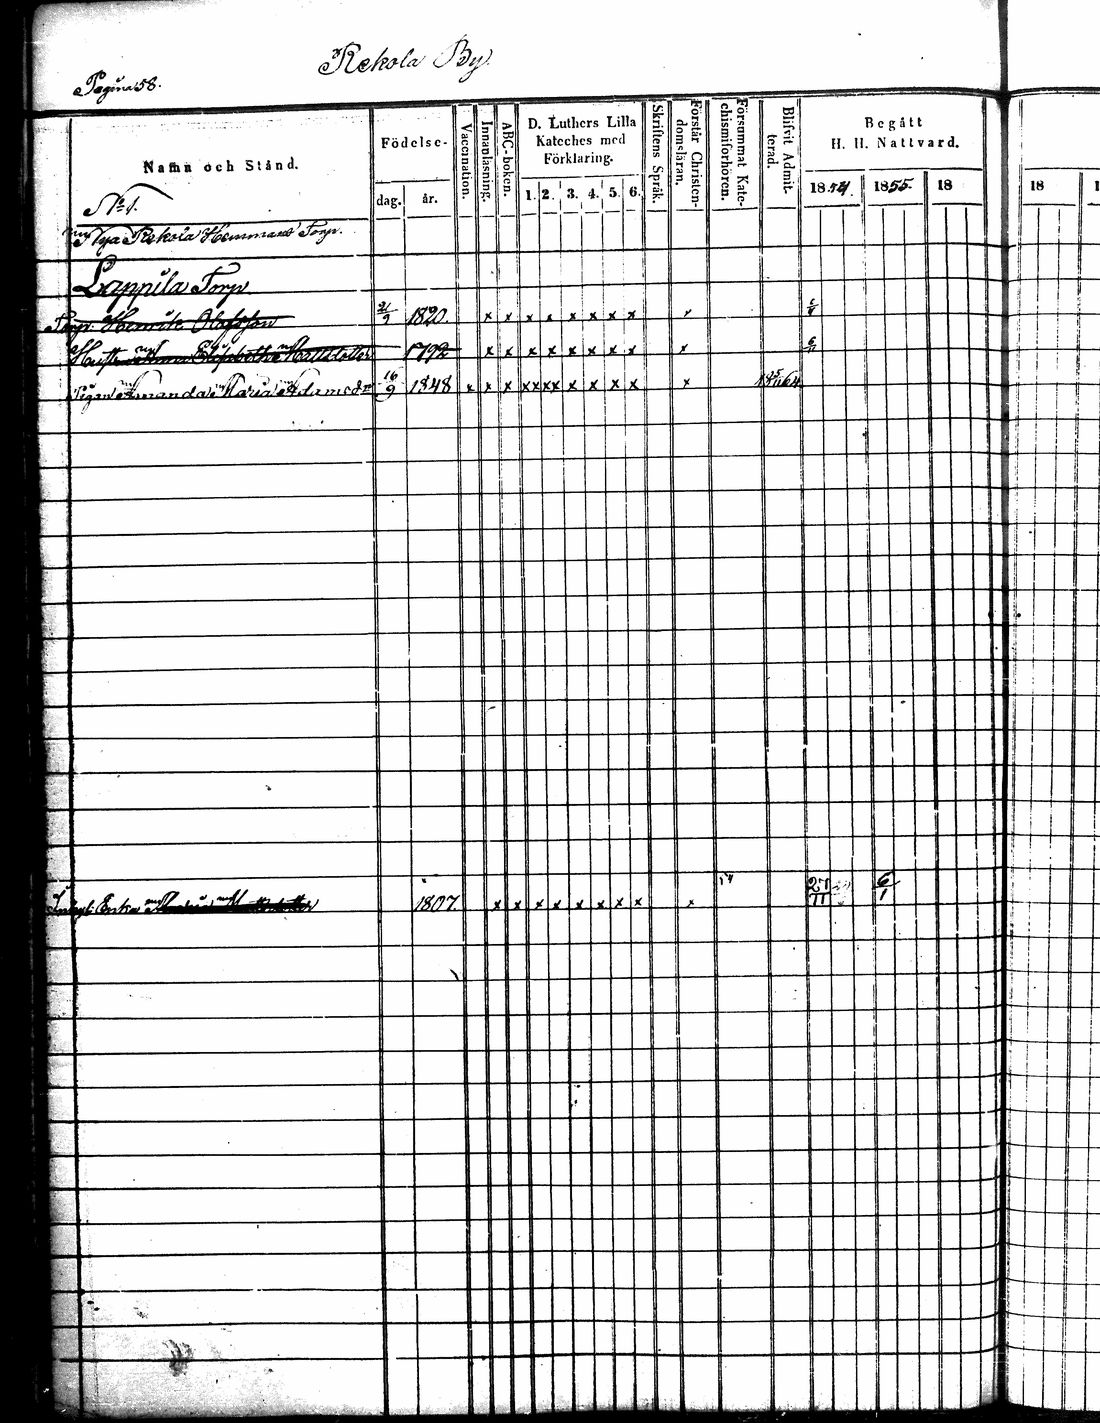 Rekola By
Pagina 58.
Namn och Stånd.
Födelse-
dag. år.
Vaccination.
Innanläsning.
ABC-boken.
D. Luthers Lilla
Kateches med
Förklaring.
1. 2. 3. 4. 5. 6.
Skriftens Språk.
Förstår Christen-
domsläran.
Försummat Kate-
chismiförhören.
Blifvit Admit-
terad.
Begått
H. H. Nattvard.
1854. 1855. 18
18
No 1.
Nya Rekola Hemmans Torp.
Lappila Torp
Torp. Henrik Olofsson 21/9 1820. x x x x x x x x x
Elisabetha Mattsdotter 1792 x x x x x x x x x
Pigan Amanda Maria Adamsdr 16/9 1848 x x x x x x x x x x x x
Erika 1807. x x x x x x x x x 27/11 6/1